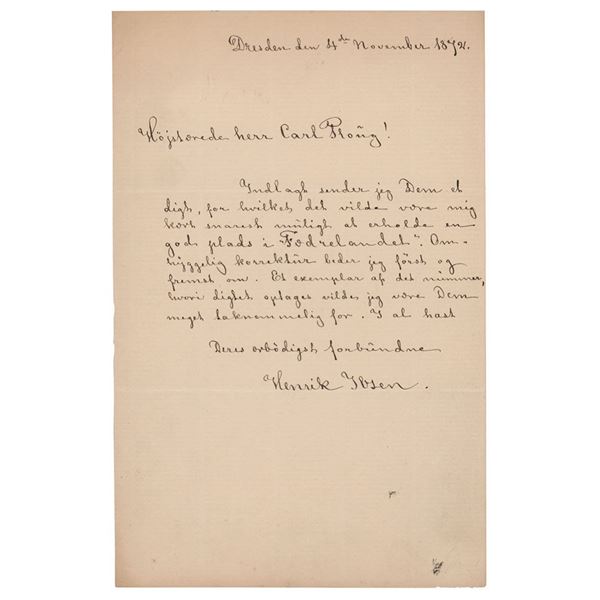 Dresden den 4de November 1872.
Höjstærede herr Carl Ploũg!
Indlagt sender jeg Dem et
digt, for hvilket det vilde være mig
kært snarest mũligt at erholde en
god plads i "Fædrelandet". Om-
hyggelig korrektũr beder jeg först og
fremst om. Et exemplar af det nũmmer,
hvori digtet optages vilde jeg være Dem
meget taknemmelig for. I al hast
Deres ærbödigst forbũndne
Henrik Ibsen.